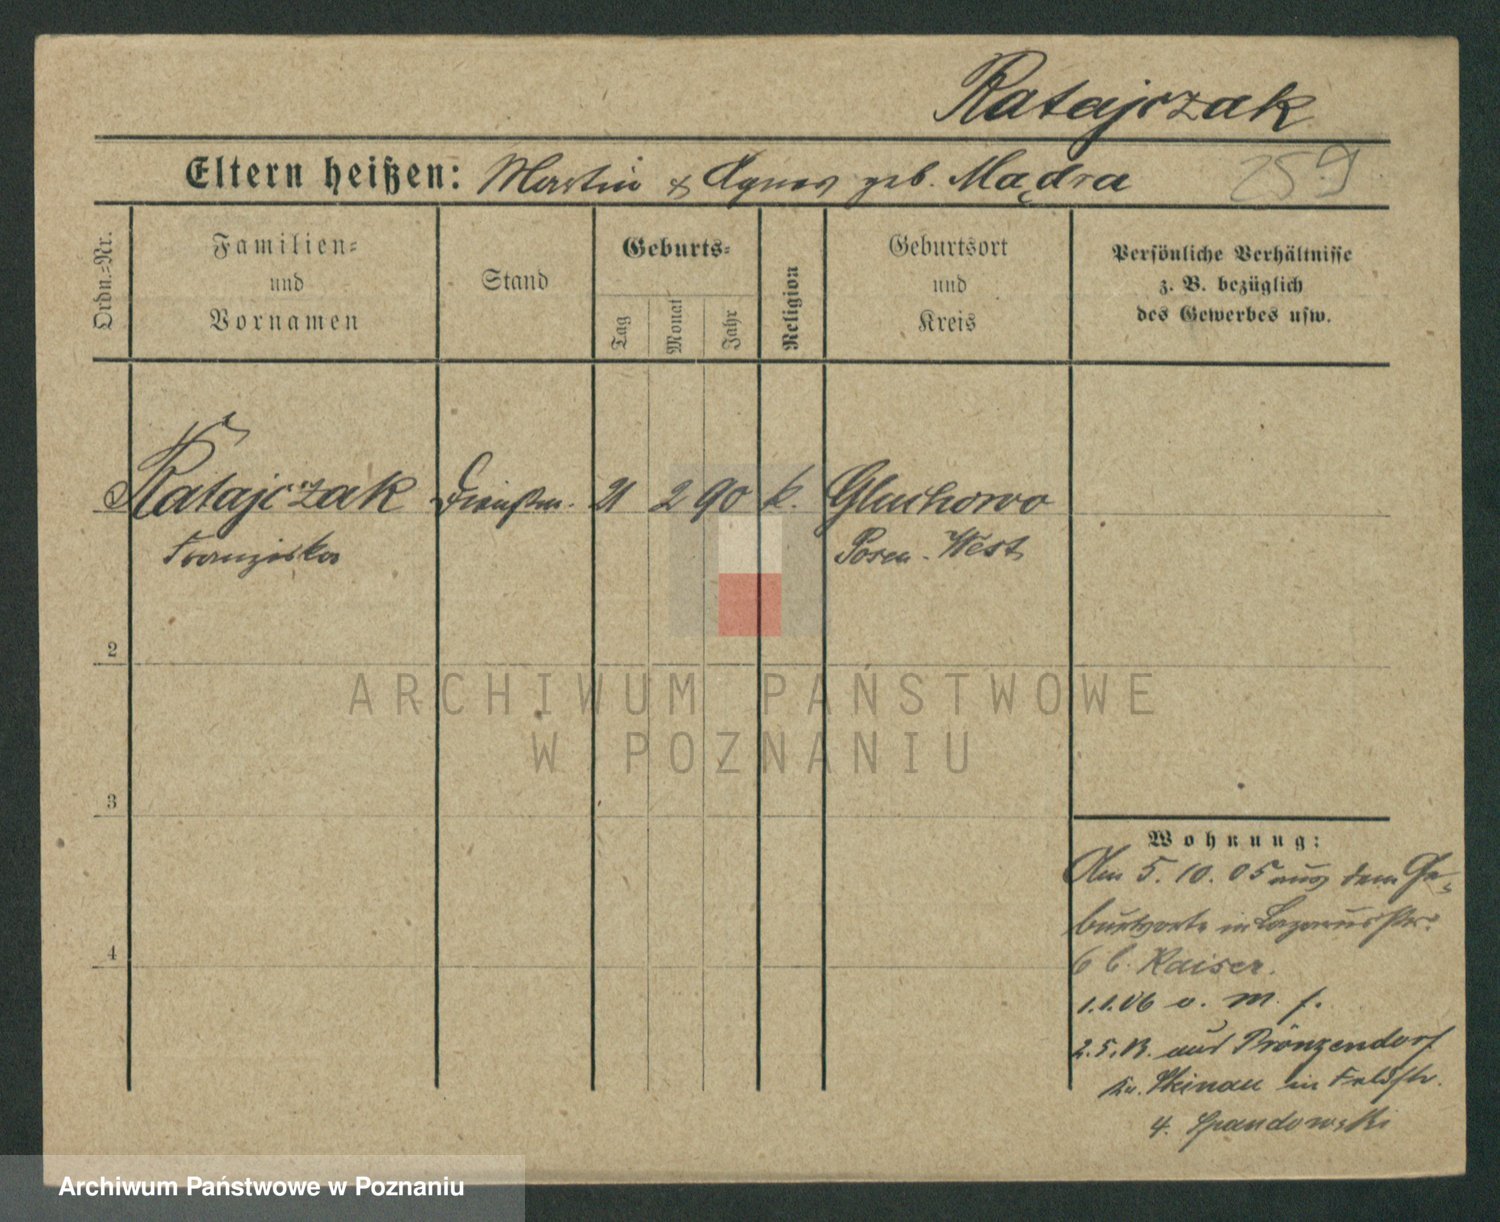 Ratajczak
Eltern heißen: Martin & Agnes geb. Mądra 259
Ordn.=Nr.
Familien=
und
Vornamen
Stand
Geburts=
Tag
Monat
Jahr
Religion
Geburtsort
und
Kreis
Persönliche Verhältnisse
z. B. bezüglich
des Gewerbes usw.
Ratajczak Dienstm. 21 2 90 k. Gluchowo
Franziska Posen-West
2
3
4
Wohnung:
Am 5.10.05 aus dem Ge-
burtsorte in Lazarusstr.
6 b. Kaiser.
1.1.06 o. m. f.
2.5.13. aus Prönzendorf
Kr. Steinau in Feldstr.
4. Spandowski
ARCHIWUM PAŃSTWOWE
W POZNANIU
Archiwum Państwowe w Poznaniu